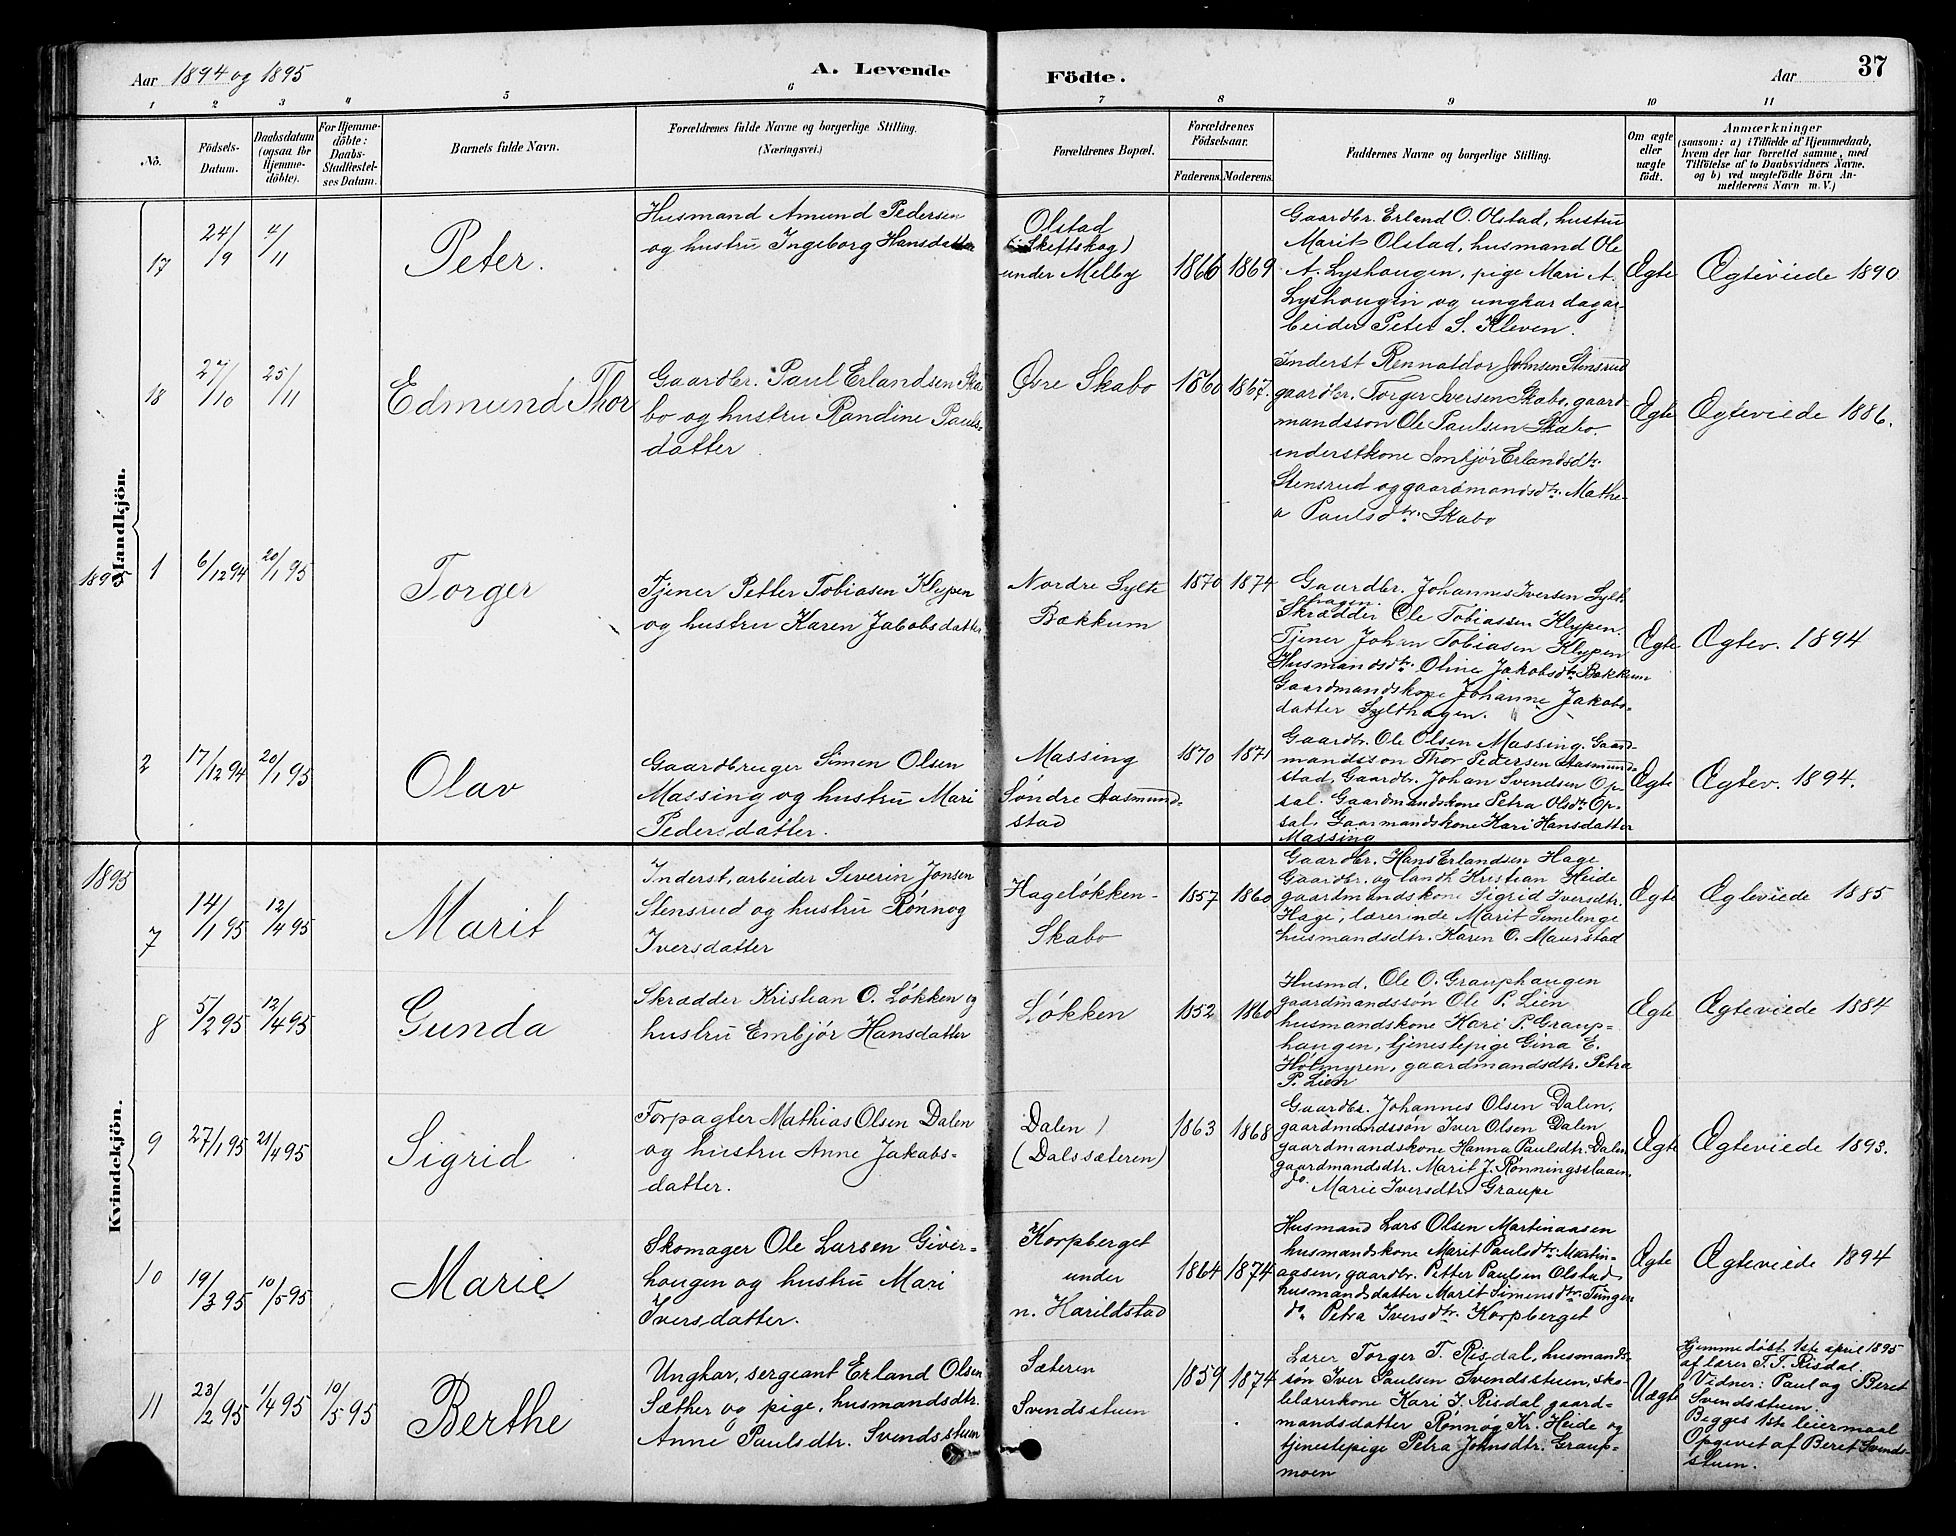 Aar 1894 og 1895
A. Levende
Födte.
Aar
37
1 2 3 4 5 6 7 8 9 10 11
No.
Födsels-
Datum.
Daabsdatum
(ogsaa for
Hjemme-
döbte).
For Hjemme-
döbte:
Daabs-
Stadfæstel-
ses Datum.
Barnets fulde Navn.
Forældrenes fulde Navne og borgerlige Stilling.
(Næringsvei.)
Forældrenes Bopæl.
Forældrenes
Födselsaar.
Faderens. Moderens.
Faddernes Navne og borgerlige Stilling.
Om ægte
eller
uægte
födt.
Anmærkninger
(saasom: a) i Tilfælde af Hjemmedaab,
hvem der har forrettet samme, med
Tilföielse af to Daabsvidners Navne.
og b) ved uægtefödte Börn An-
melderens Navn m. V.)
Mandkjön.
17
24/9
4/11
Peter.
Husmand Amund Pedersen
og hustru Ingeborg Hansdatter
Olstad
(i Skeftskog)
under Melby
1866
1869
Gaardbr. Erland O. Olstad, hustru
Marit Olstad, husmand Ole
A. Lyshougen, pige Mari A.
Lyshougin og ungkar dagar-
beider Peter S. Kleven.
Ægte
Ægteviede 1890
18
27/10
25/11
Edmund Thor
Gaardbr. Paul Erlandsen Ska-
bo og hustru Randine Pauls-
datter
Øvre Skabo
1860
1867.
Inderst Rennaldor Johnsen Stensrud
gaardbr. Torger Iversen Skabo, gaard-
mandsson Ole Paulsen Skabo.
inderstkone Imbjør Erlandsdtr.
Stensrud og gaardmandsdtr. Mathe-
a Paulsdtr. Skabo
Ægte
Ægteviede 1886.
1895
1
6/12 94
20/1 95
Torger
Tjener Petter Tobiasen Klypen
og hustru Karen Jakobsdatter
Nordre Sylte
Bækkum
1870
1874
Gaardbr. Johannes Iversen Sylt-
hagen.
Skrædder Ole Tobiassen Klypen.
Tjener Johan Tobiasen Klypen
Husmandsdtr. Oline Jakobsdtr. Bækkum
Gaardmandskone Johanne Jakobs-
datter Sylthagen.
Ægte
Ægtev. 1894
2
17/12 94
20/1 95
Olav
Gaardbruger Simen Olsen
Massing og hustru Mari
Pedersdatter.
Massing
Søndre Aasmund-
stad
1870
1871
Gaardbr. Ole Olsen Massing. Gaard-
mandsson Thor Pedersen Aasmund-
stad, Gaardbr. Johan Svendsen Op-
sal. Gaardmandskone Petra Olsdtr. Op-
sal, Gaarmandskone Kari Hansdatter
Massing
Ægte
Ægtev. 1894.
1895
Kvindekjön.
7
14/1 95
12/4 95
Marit
Inderst, arbeider Severin Jonsen
Stensrud og hustru Rønnog
Iversdatter
Hageløkken-
Skabo
1857
1860
Gaardbr. Hans Erlandsen Hage
Gaardbr. og landh. Kristian Heide
gaardmandskone Sigrid Iversdtr.
Hage, lærerinde Marit Simelenge
husmandsdtr. Karen O. Maurstad
Ægte
Ægteviede 1885
8
5/2 95
12/4 95
Gunda
Skrædder Kristian O. Løkken og
hustru Embjør Hansdatter
Løkken
1852
1860
Husmd. Ole O. Grauphaugen
gaardmandssøn Ole P. Lien
husmandskone Kari P. Graup-
haugen, tjenestepige Gina E.
Holmyren, gaardmandsdtr. Petra
P. Lien
Ægte
Ægteviede 1884
9
27/1 95
21/4 95
Sigrid
Forpagter Mathias Olsen Dalen
og hustru Anne Jakobs-
datter.
Dalen
(Dalssæteren)
1863
1868
Gaardbr. Johannes Olsen Dalen,
gaardmandssøn Iver Olsen Dalen
gaardmandskone Hanna Paulsdtr. Dalen
gaardmandsdtr. Marit J. Rønningsslaaen
do Marie Iversdtr. Graupe
Ægte
Ægteviede 1893.
10
19/3 95
10/5 95
Marie
Skomager Ole Larsen Giver-
hougen og hustru Mari
Iversdatter.
Korpberget
under
n. Harildstad
1864
1874
Husmand Lars Olsen Martinaasen
husmandskone Marit Paulsdtr. Martin-
aasen, gaardbr. Petter Paulsen Olstad
husmandsdatter Marit Simensdtr. Tungen
do Petra Iversdtr. Korpberget
Ægte
Ægteviede 1894
11
23/2 95
1/4 95
10/5 95
Berthe
Ungkar, sergeant Erland Olsen
Sæther og pige, husmandsdtr.
Anne Paulsdtr. Svendsstuen
Sæteren
Svendsstuen
1859
1874
Lærer Torger T. Risdal, husmands-
søn Iver Paulsen Svendsstuen, sko-
lelærerkone Kari I. Risdal, gaard-
mandsdatter Rønnøg Kr. Heide og
tjenestepige Petra Johnsdtr. Graup-
moen
Uægte
Hjemmedøbt 1ste april 1895
af lærer T. T. Risdal.
Vidner: Paul og Beret
Svendsstuen.
Begges 1ste leiermaal
Opgivet af Beret Svends-
stuen.